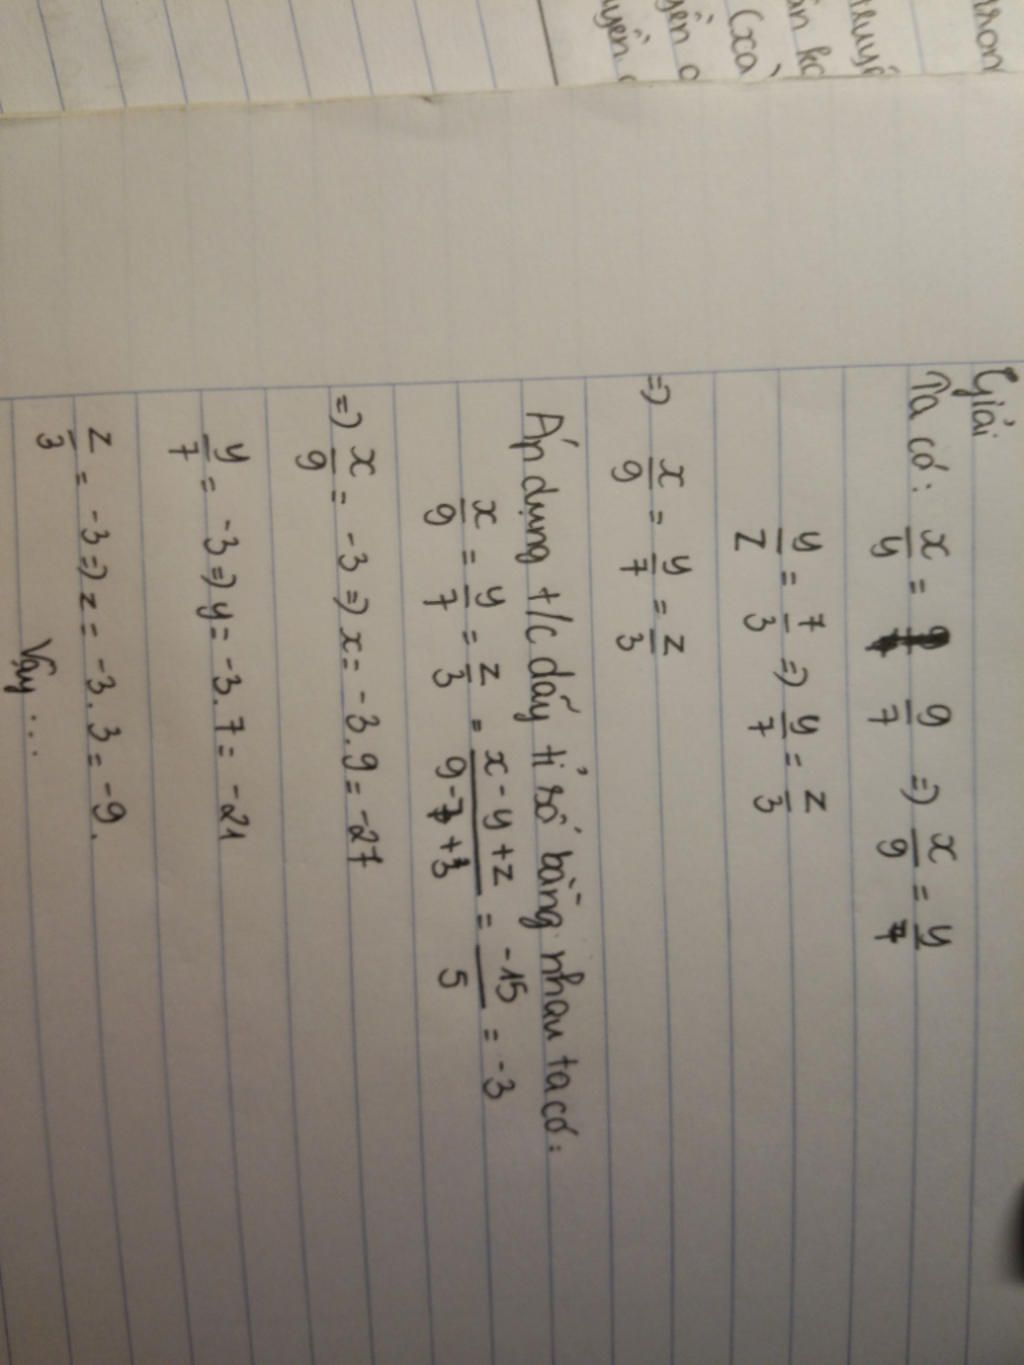 Giải
Ta có: x/y = 9/7 => x/9 = y/7
y/z = 7/3 => y/7 = z/3
=> x/9 = y/7 = z/3
Áp dụng t/c dãy tỉ số bằng nhau ta có:
x/9 = y/7 = z/3 = (x-y+z)/(9-7+3) = -15/5 = -3
=> x/9 = -3 => x = -3.9 = -27
y/7 = -3 => y = -3.7 = -21
z/3 = -3 => z = -3.3 = -9.
Vậy...